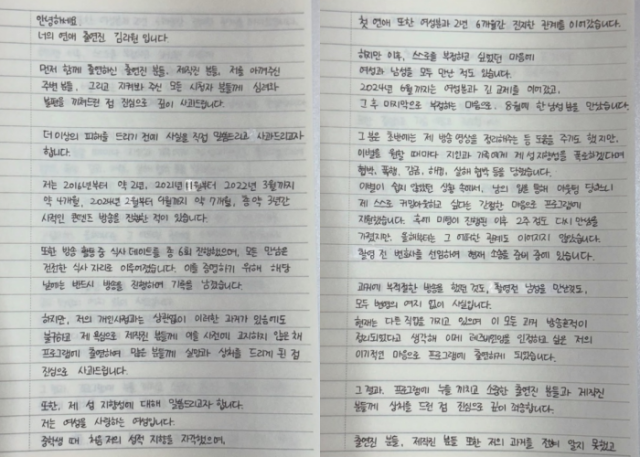 안녕하세요
너의 연애 출연진 김리원 입니다.
먼저 함께 출연하신 출연진 분들, 제작진 분들, 저를 아껴주신
주변 분들, 그리고 지켜봐 주신 모든 시청자 분들께 심려와
불편을 끼쳐드린 점 진심으로 깊이 사과드립니다.
더 이상의 피해를 드리기 전에 사실을 직접 말씀드리고 사과드리고자
합니다.
저는 2016년부터 약 2년, 2021년 11월부터 2022년 3월까지
약 4개월, 2024년 2월부터 9월까지 약 7개월, 총 약 3년간
시청인 콘텐츠 방송을 진행한 적이 있습니다.
또한 방송 활동 중 식사 데이트를 총 6회 진행했으며, 모든 만남은
건전한 식사 자리로 이루어졌습니다. 이를 증명하기 위해 해당
날에는 반드시 방송을 진행하여 기록을 남겼습니다.
하지만, 저의 개인사정과는 상관없이 이러한 과거가 있음에도
불구하고 제 욕심으로 제작진 분들께 이를 사전에 고지하지 않은 채
프로그램에 출연하여 많은 분들께 실망과 상처를 드리게 된 점
진심으로 사과드립니다.
또한, 제 성 지향성에 대해 말씀드리고자 합니다.
저는 여성을 사랑하는 여성입니다.
중학생 때 처음 저의 성적 지향을 자각했으며,
첫 연애 또한 여성분과 2년 6개월간 진지한 관계를 이어갔습니다.
하지만 이후, 스스로를 부정하고 싶었던 마음에
여성과 남성을 모두 만난 적도 있습니다.
2024년 6월까지는 여성분과 긴 교제를 이어갔고,
그 후 마지막으로 부정하는 마음으로, 8월에 한 남성 분을 만났습니다.
그 분은 초반에는 제 방송 영상을 정리해주는 등 도움을 주기도 했지만,
이별을 원할 때마다 지인과 가족에게 제 성 지향성을 폭로하겠다며
협박, 폭행, 감금, 해킹, 살해 협박 등을 당했습니다.
이별이 쉽지 않았던 상황 속에서, 남의 입을 통해 아웃팅 당하느니
제 스스로 커밍아웃하고 싶다는 간절한 마음으로 프로그램에
지원했습니다. 후에 미팅이 진행된 이후 2주 정도 다시 만남을
가졌지만, 올해부터는 그 어떠한 관계도 이어지지 않았습니다.
촬영 전 변호사를 선임하여 현재 소송을 준비 중에 있습니다.
과거에 부적절한 방송을 했던 것도, 촬영전 남성을 만난것도,
모두 변명의 여지 없이 사실입니다.
현재는 다른 직업을 가지고 있으며 이 모든 과거 방송흔적이
정리되었다고 생각해 이제 레즈비언임을 인정하고 싶은 저의
이기적인 마음으로 프로그램에 출연하게 되었습니다.
그 결과, 프로그램에 누를 끼치고 소중한 출연진 분들과 제작진
분들께 상처를 드린 점 진심으로 깊이 죄송합니다.
출연진 분들, 제작진 분들 또한 저의 과거를 전혀 알지 못했고